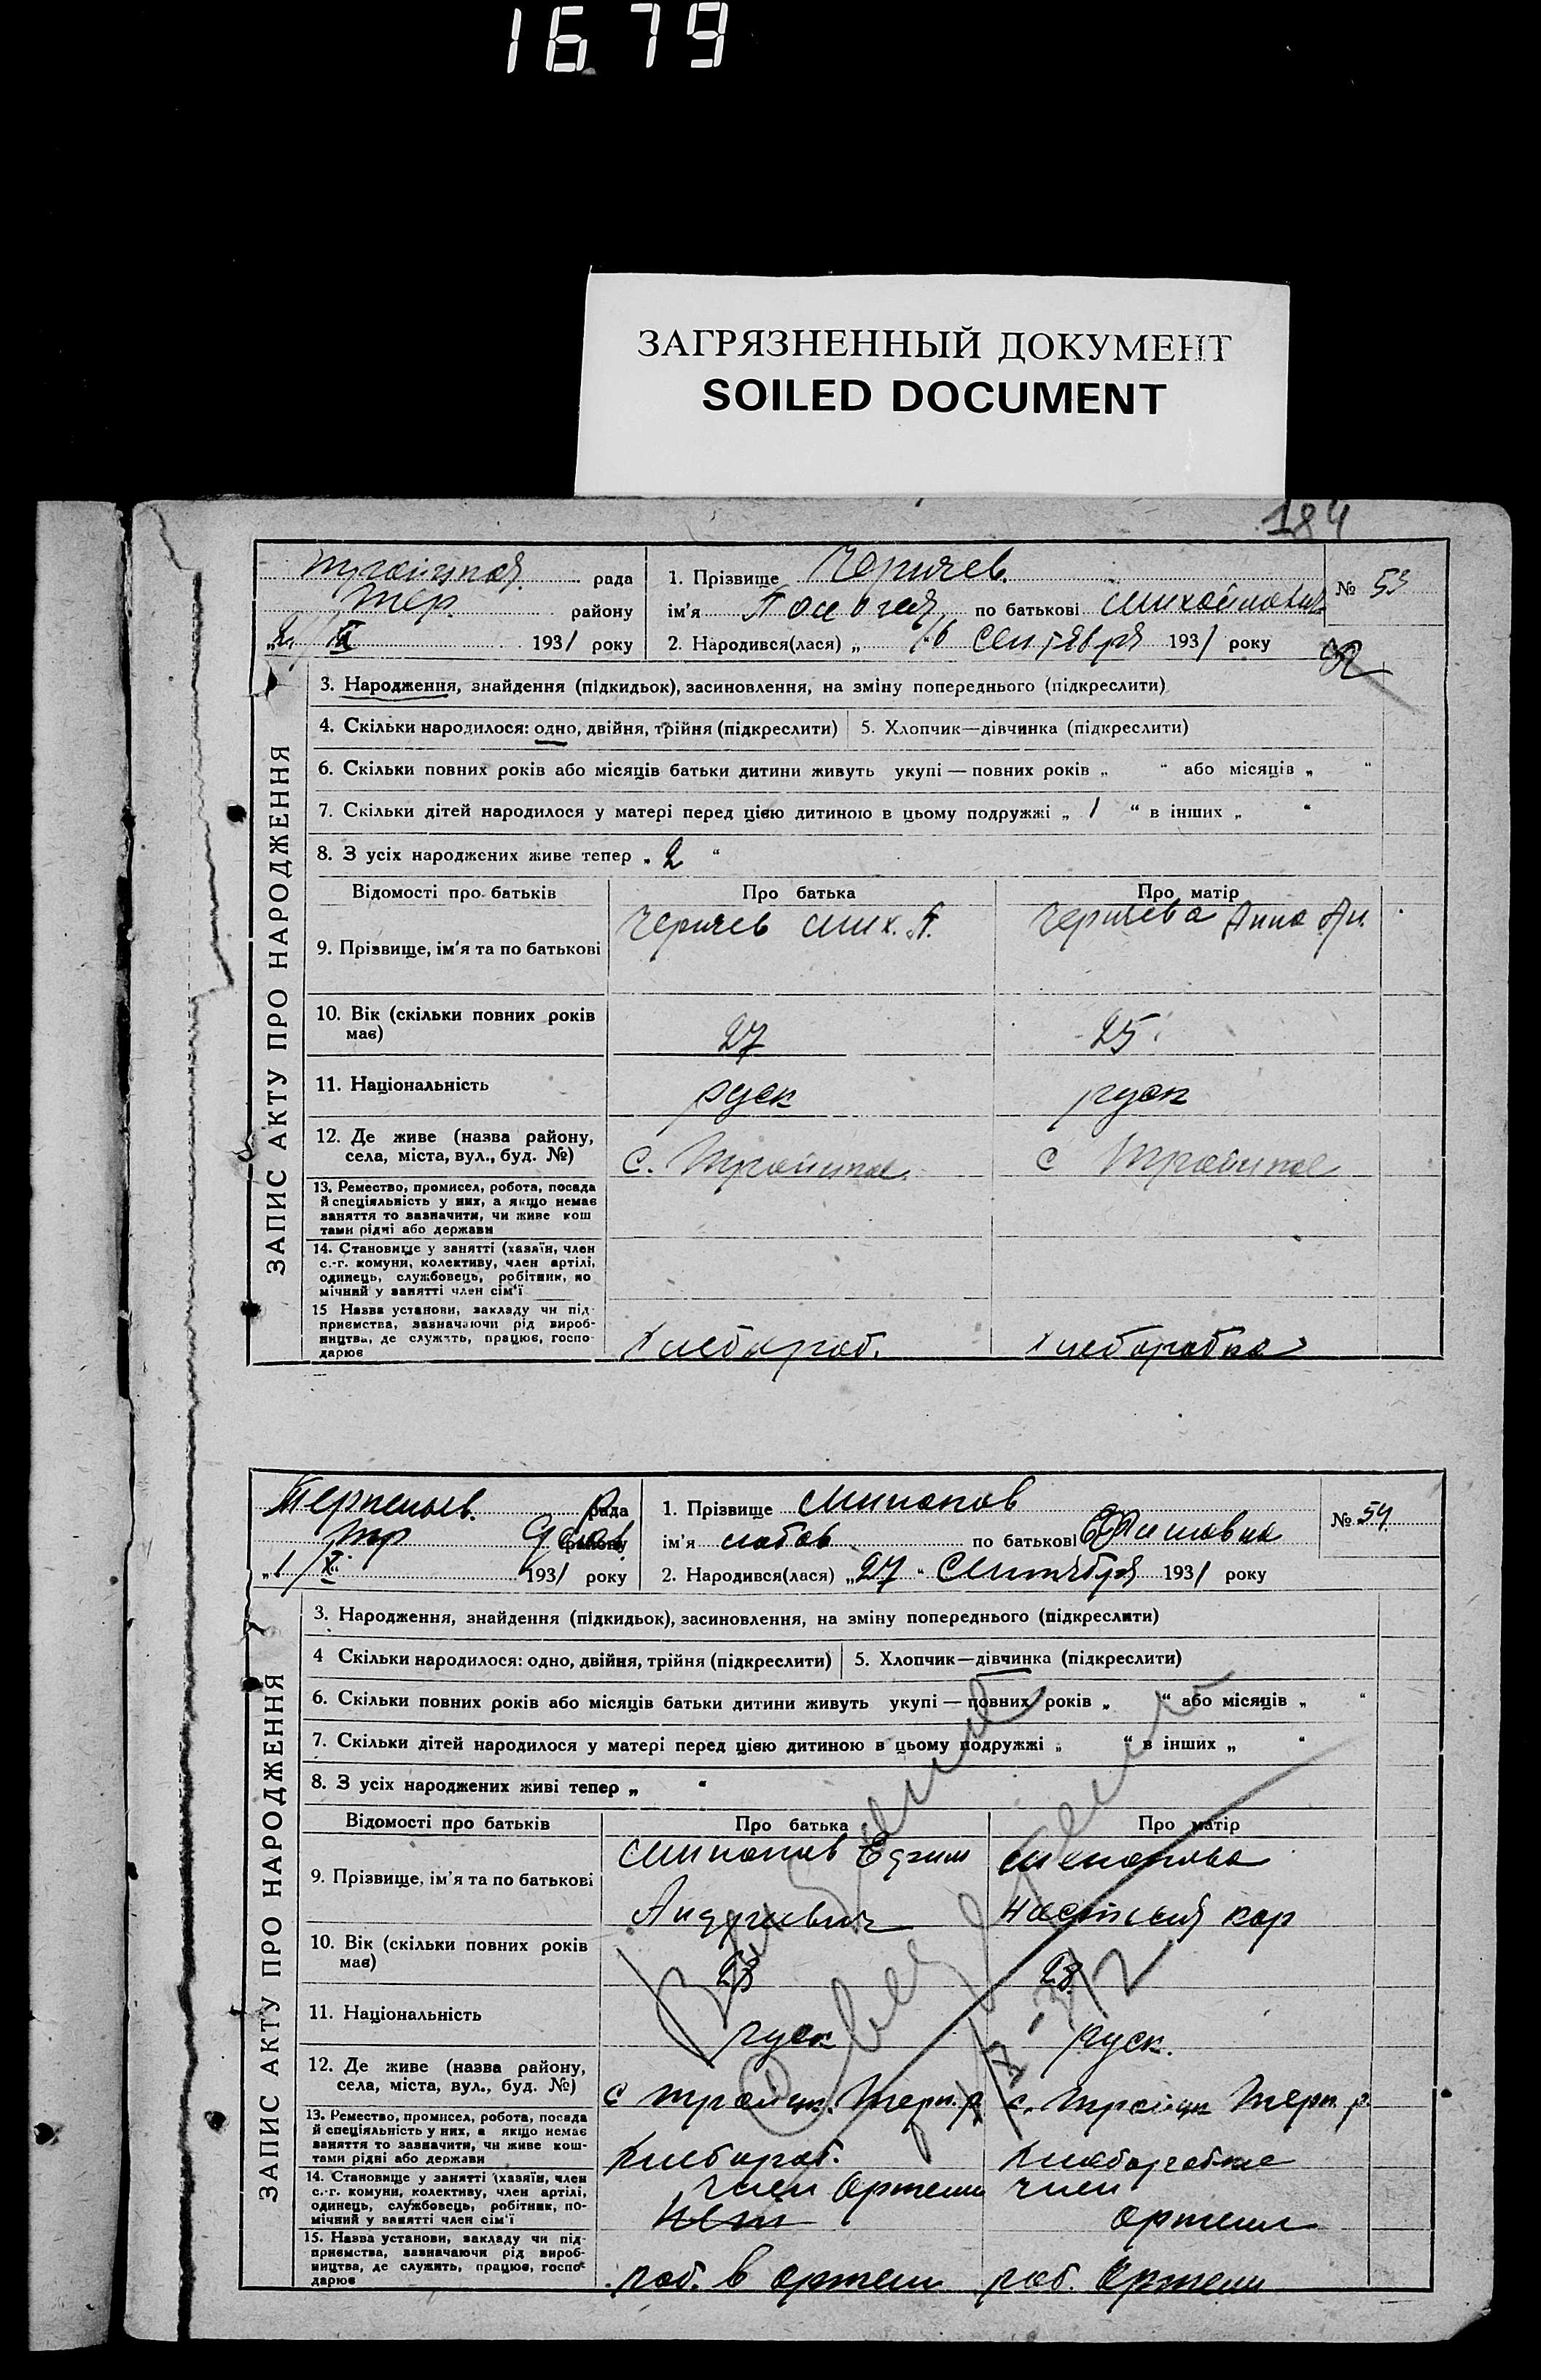 1679
ЗАГРЯЗНЕННЫЙ ДОКУМЕНТ
SOILED DOCUMENT
184
ЗАПИС АКТУ ПРО НАРОДЖЕННЯ
рада
Тер. району
1931 року
1. Прізвище
ім'я по батькові
2. Народився(лася) „16 Сентября 1931 року
№ 53
3. Народження, знайдення (підкидьок), засиновлення, на зміну попереднього (підкреслити)
4. Скільки народилося: одно, двійня, трійня (підкреслити) 5. Хлопчик—дівчинка (підкреслити)
6. Скільки повних років або місяців батьки дитини живуть укупі — повних років „ “ або місяців „ “
7. Скільки дітей народилося у матері перед цією дитиною в цьому подружжі „ 1 “ в інших „ “
8. З усіх народжених живе тепер „ 2 “
Відомості про батьків Про батька Про матір
9. Прізвище, ім'я та по батькові Мих. Анна
10. Вік (скільки повних років 27 25
має)
11. Національність руск руск
12. Де живе (назва району,
села, міста, вул., буд. №) с. Тройцкое с Тройцкое
13. Ремество, промисел, робота, посада
й спеціяльність у них, а якщо немає
заняття то зазначити, чи живе кош
тами рідні або держави
14. Становище у занятті (хазяїн, член
с.-г. комуни, колективу, член артілі,
одинець, службовець, робітник, по
мічний у занятті член сім'ї
15 Назва установи, закладу чи під-
приємства, зазначаючи рід вироб-
ництва, де служить, працює, госпо-
дарює Хлебораб. Хлеборабка
ЗАПИС АКТУ ПРО НАРОДЖЕННЯ
рада
району
„1/X 1931 року
1. Прізвище
ім'я по батькові
2. Народився(лася) „27“ Сентября 1931 року
№ 54
3. Народження, знайдення (підкидьок), засиновлення, на зміну попереднього (підкреслити)
4 Скільки народилося: одно, двійня, трійня (підкреслити) 5. Хлопчик—дівчинка (підкреслити)
6. Скільки повних років або місяців батьки дитини живуть укупі — повних років „ “ або місяців „ “
7. Скільки дітей народилося у матері перед цією дитиною в цьому подружжі „ “ в інших „ “
8. З усіх народжених живі тепер „ “
Відомості про батьків Про батька Про матір
9. Прізвище, ім'я та по батькові
10. Вік (скільки повних років 28 28
має)
11. Національність руск руск.
12. Де живе (назва району,
села, міста, вул., буд. №) с Тройцк. Терп. р с. Тройцк Терп. р.
13. Ремество, промисел, робота, посада
й спеціяльність у них, а якщо немає
заняття то зазначити, чи живе кош-
тами рідні або держави Хлебораб. Хлеборабка
14. Становище у занятті (хазяїн, член член Артели член
с.-г. комуни, колективу, член артілі,
одинець, службовець, робітник, по- Артели
мічний у занятті член сім'ї
15. Назва установи, закладу чи під-
приємства, зазначаючи рід вироб-
ництва, де служить, працює, госпо-
дарює раб. в артели раб. Артели